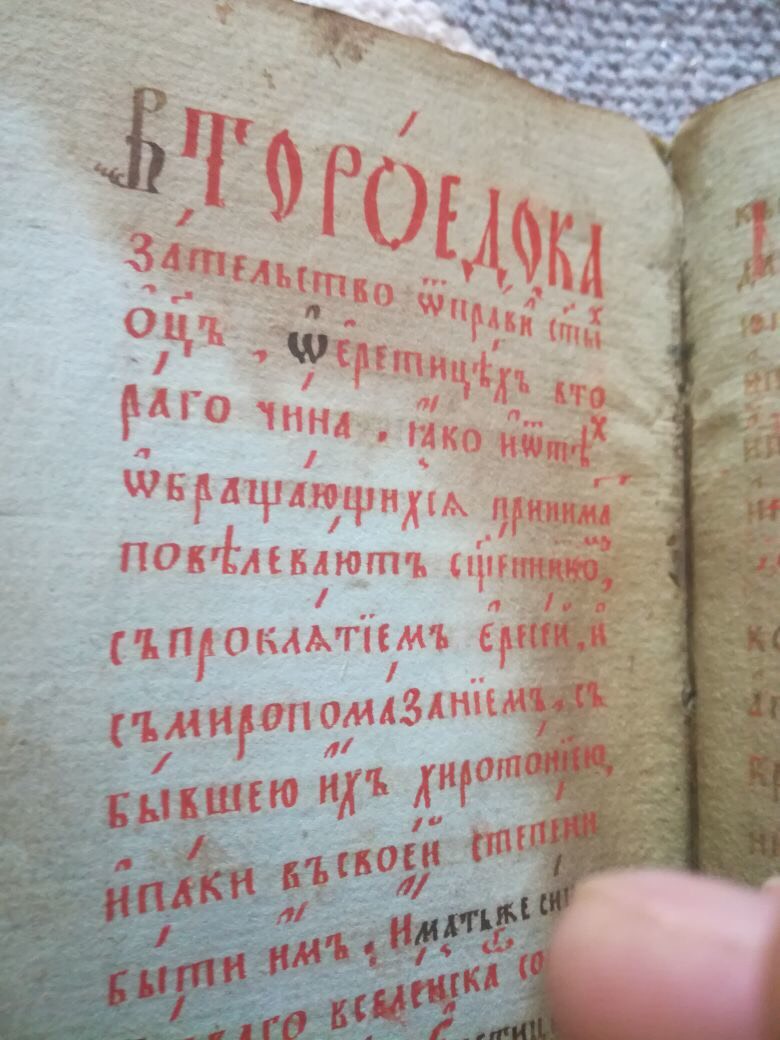 Второ́едока
за́тельство ѿпра́ви ст҃ы́хъ
ѻ҆ц҃ъ , ѡ҆є҆ре́тицѣхъ вто
ра́го чи́на . ꙗ҆́ко и҆ѿтѣ́х
ѡ҆браща́ющихсѧ принима́
повѣлева́ютъ
съпроклѧ́тїемъ є҆́ресей , и҆
съмиропома́занїемъ , съ
бы́вшею и҆́хъ хиротоні́ею,
и҆па́ки въсвое́й сте́пени
бы́ти и҆̀мъ . И҆́матьже
вселе́нска